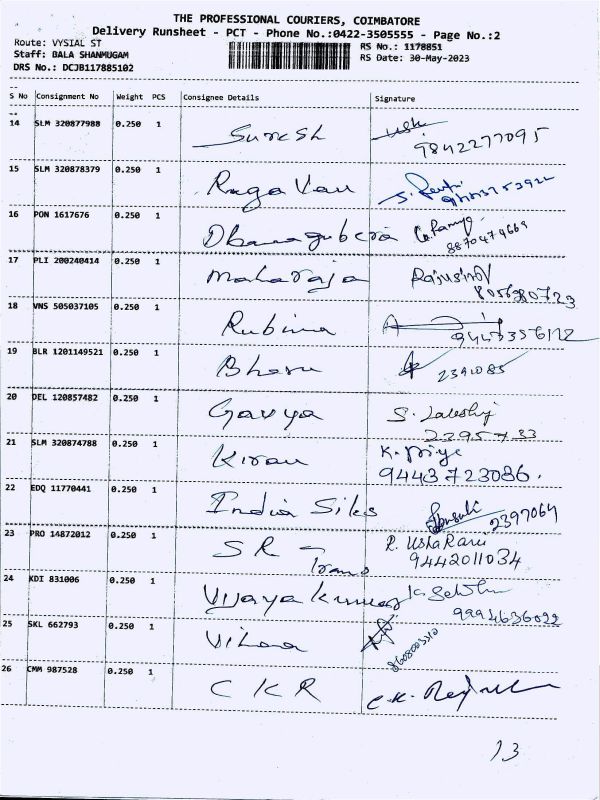 THE PROFESSIONAL COURIERS, COIMBATORE
Delivery Runsheet - PCT - Phone No.:0422-3505555 - Page No.:2
Route: VYSIAL ST
RS No.: 1178851
Staff: BALA SHANMUGAM
RS Date: 30-May-2023
DRS No.: DCJB117885102
S No Consignment No Weight PCS Consignee Details Signature
14 SLM 320877988 0.250 1 Suresh
9842277095
15 SLM 320878379 0.250 1 Ragavan
16 PON 1617676 0.250 1
8870474669
17 PLI 200240414 0.250 1 Maharaja
18 VNS 505037105 0.250 1 Rubina
19 BLR 1201149521 0.250 1 2391085
20 DEL 120857482 0.250 1 Gavya S.
21 SLM 320874788 0.250 1 Kiran K. Priya
9443723086.
22 EDQ 11770441 0.250 1 India Silks 2397064
23 PRO 14872012 0.250 1 SR - Trans R. Usha Rani
9442011034
24 KDI 831006 0.250 1 Vijayakumar
9994636022
25 SKL 662793 0.250 1
26 CMM 987528 0.250 1 CKR C.K.
13